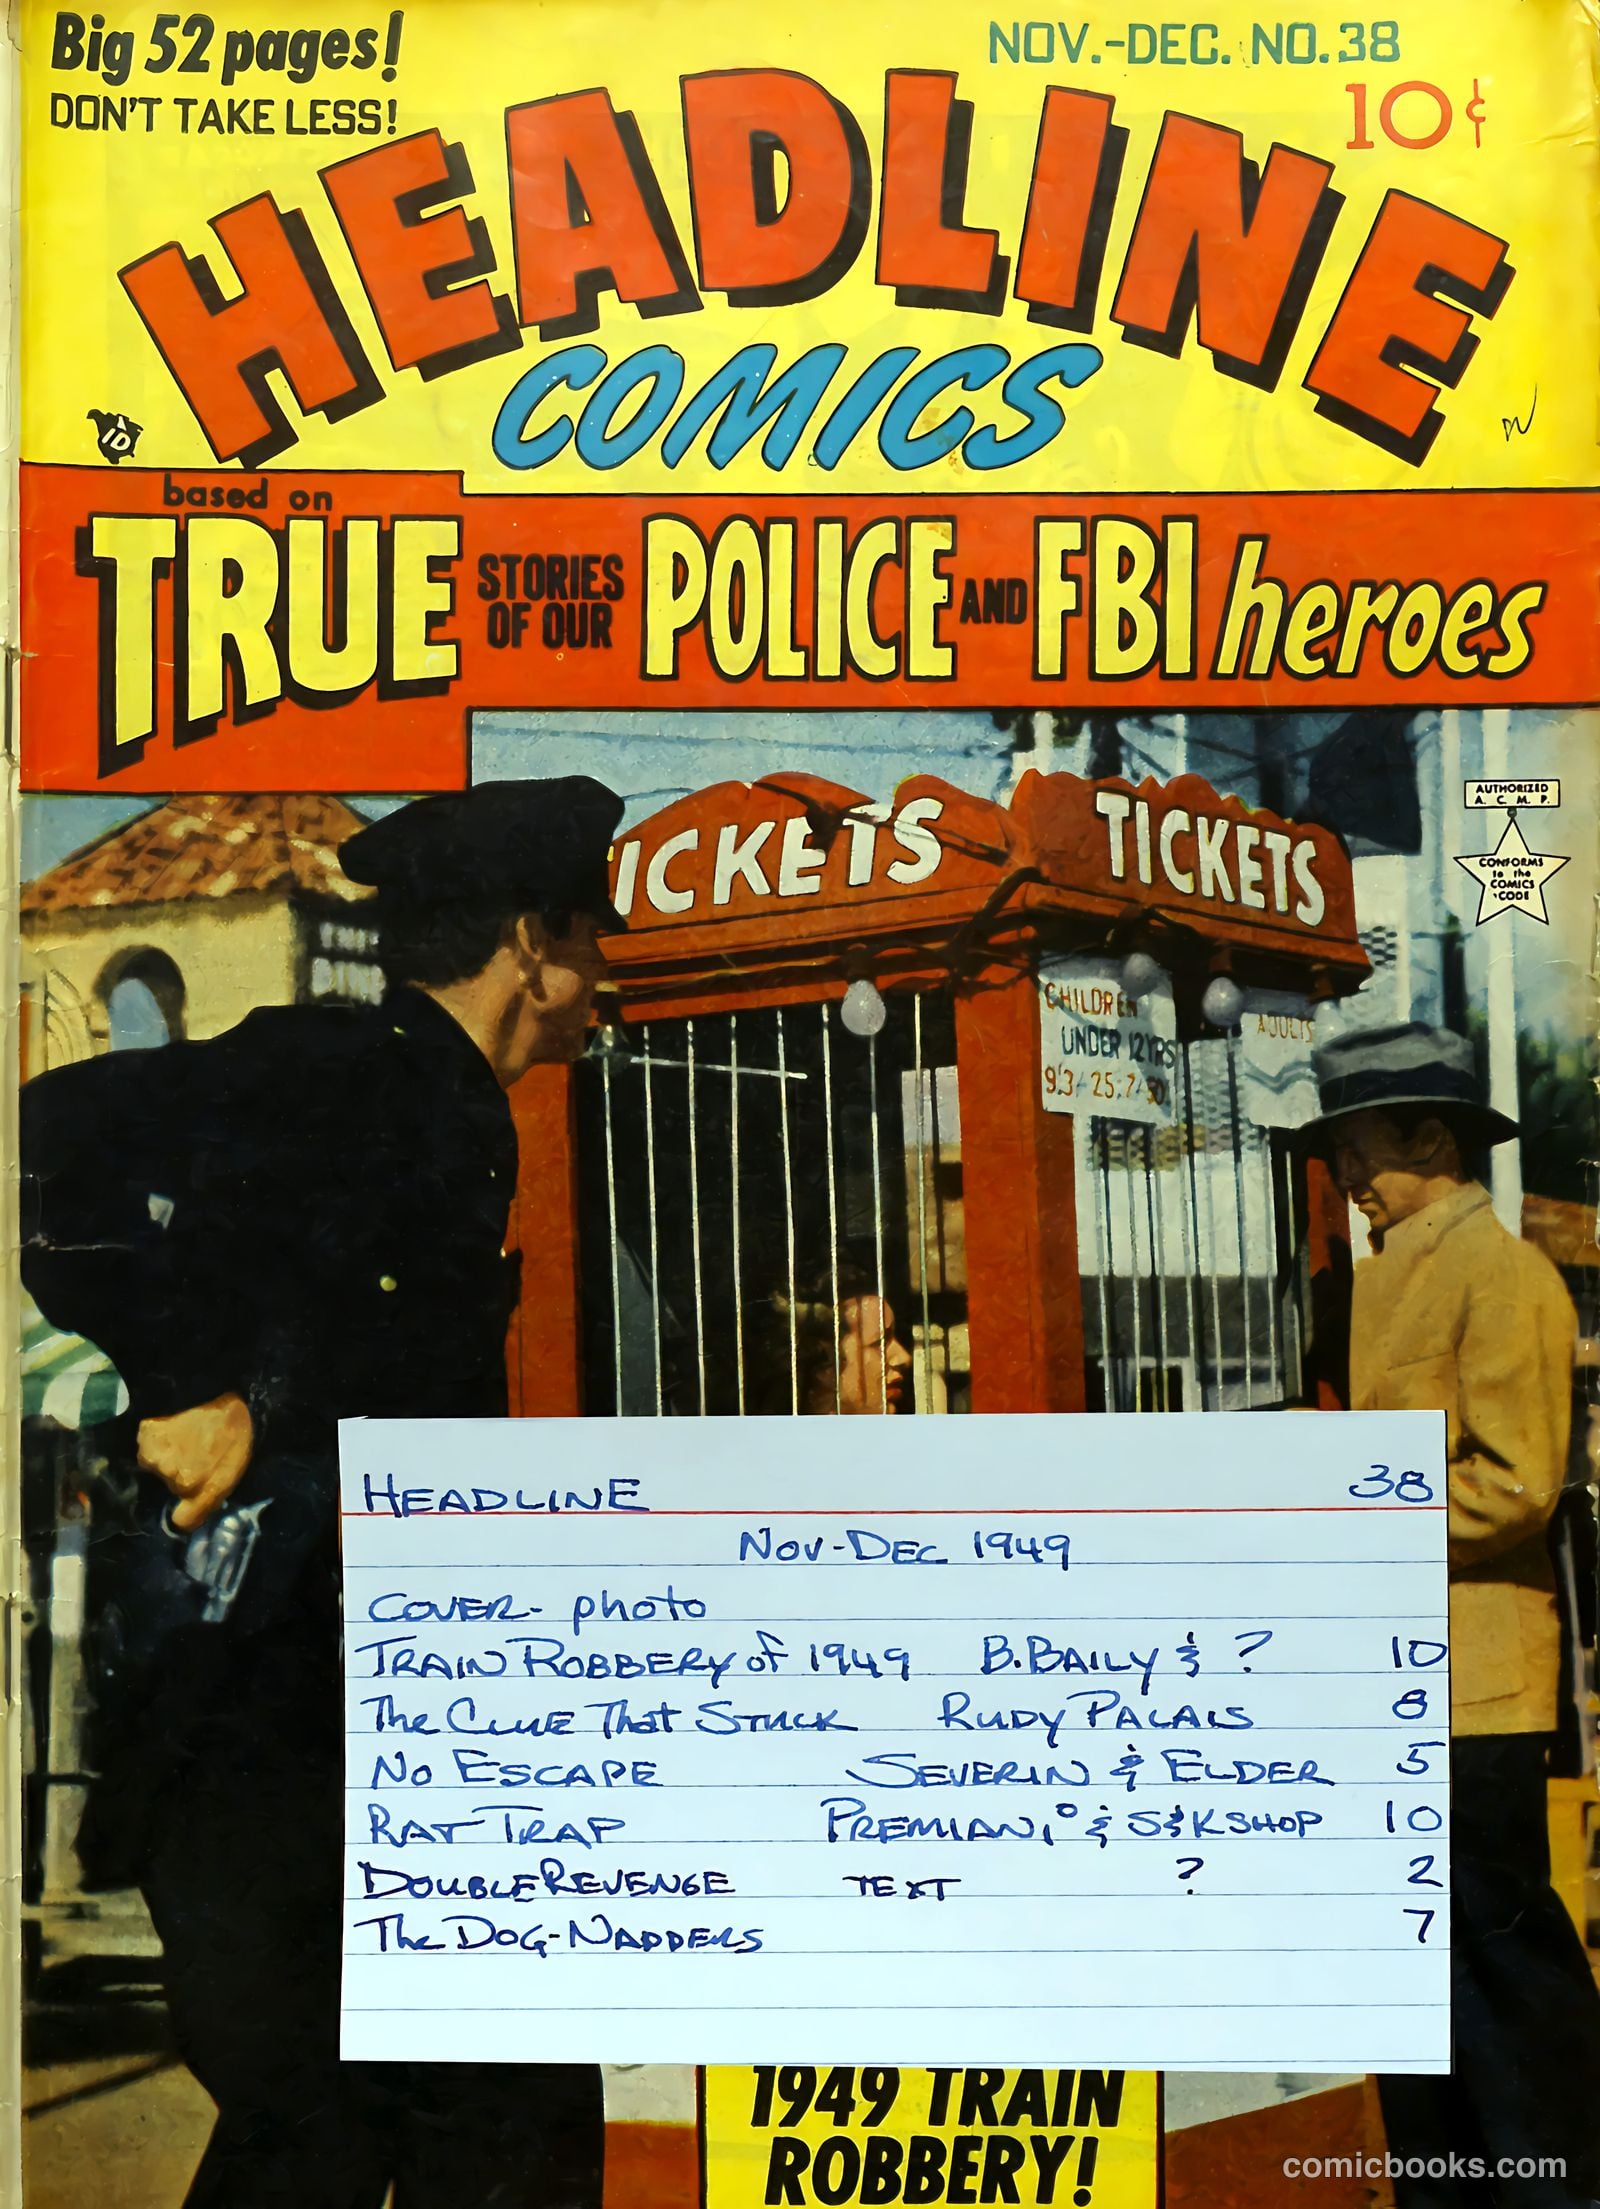 Big 52 pages!
DON'T TAKE LESS!
NOV.-DEC. NO. 38
10¢
HEADLINE
COMICS
based on
TRUE STORIES OF OUR POLICE AND FBI heroes
TICKETS
TICKETS
AUTHORIZED
A. C. M. P.
CONFORMS
to the
COMICS
CODE
CHILDREN
UNDER 12YRS
ADULTS
HEADLINE 38
Nov-Dec 1949
COVER- photo
TRAIN ROBBERY of 1949 B. BAILY & ? 10
The Clue That Stuck RUDY PALAIS 8
No ESCAPE SEVERIN & ELDER 5
RAT TRAP PREMIANI & S&K SHOP 10
DOUBLE REVENGE TEXT ? 2
The DOG-NAPPERS 7
1949 TRAIN
ROBBERY!
comicbooks.com